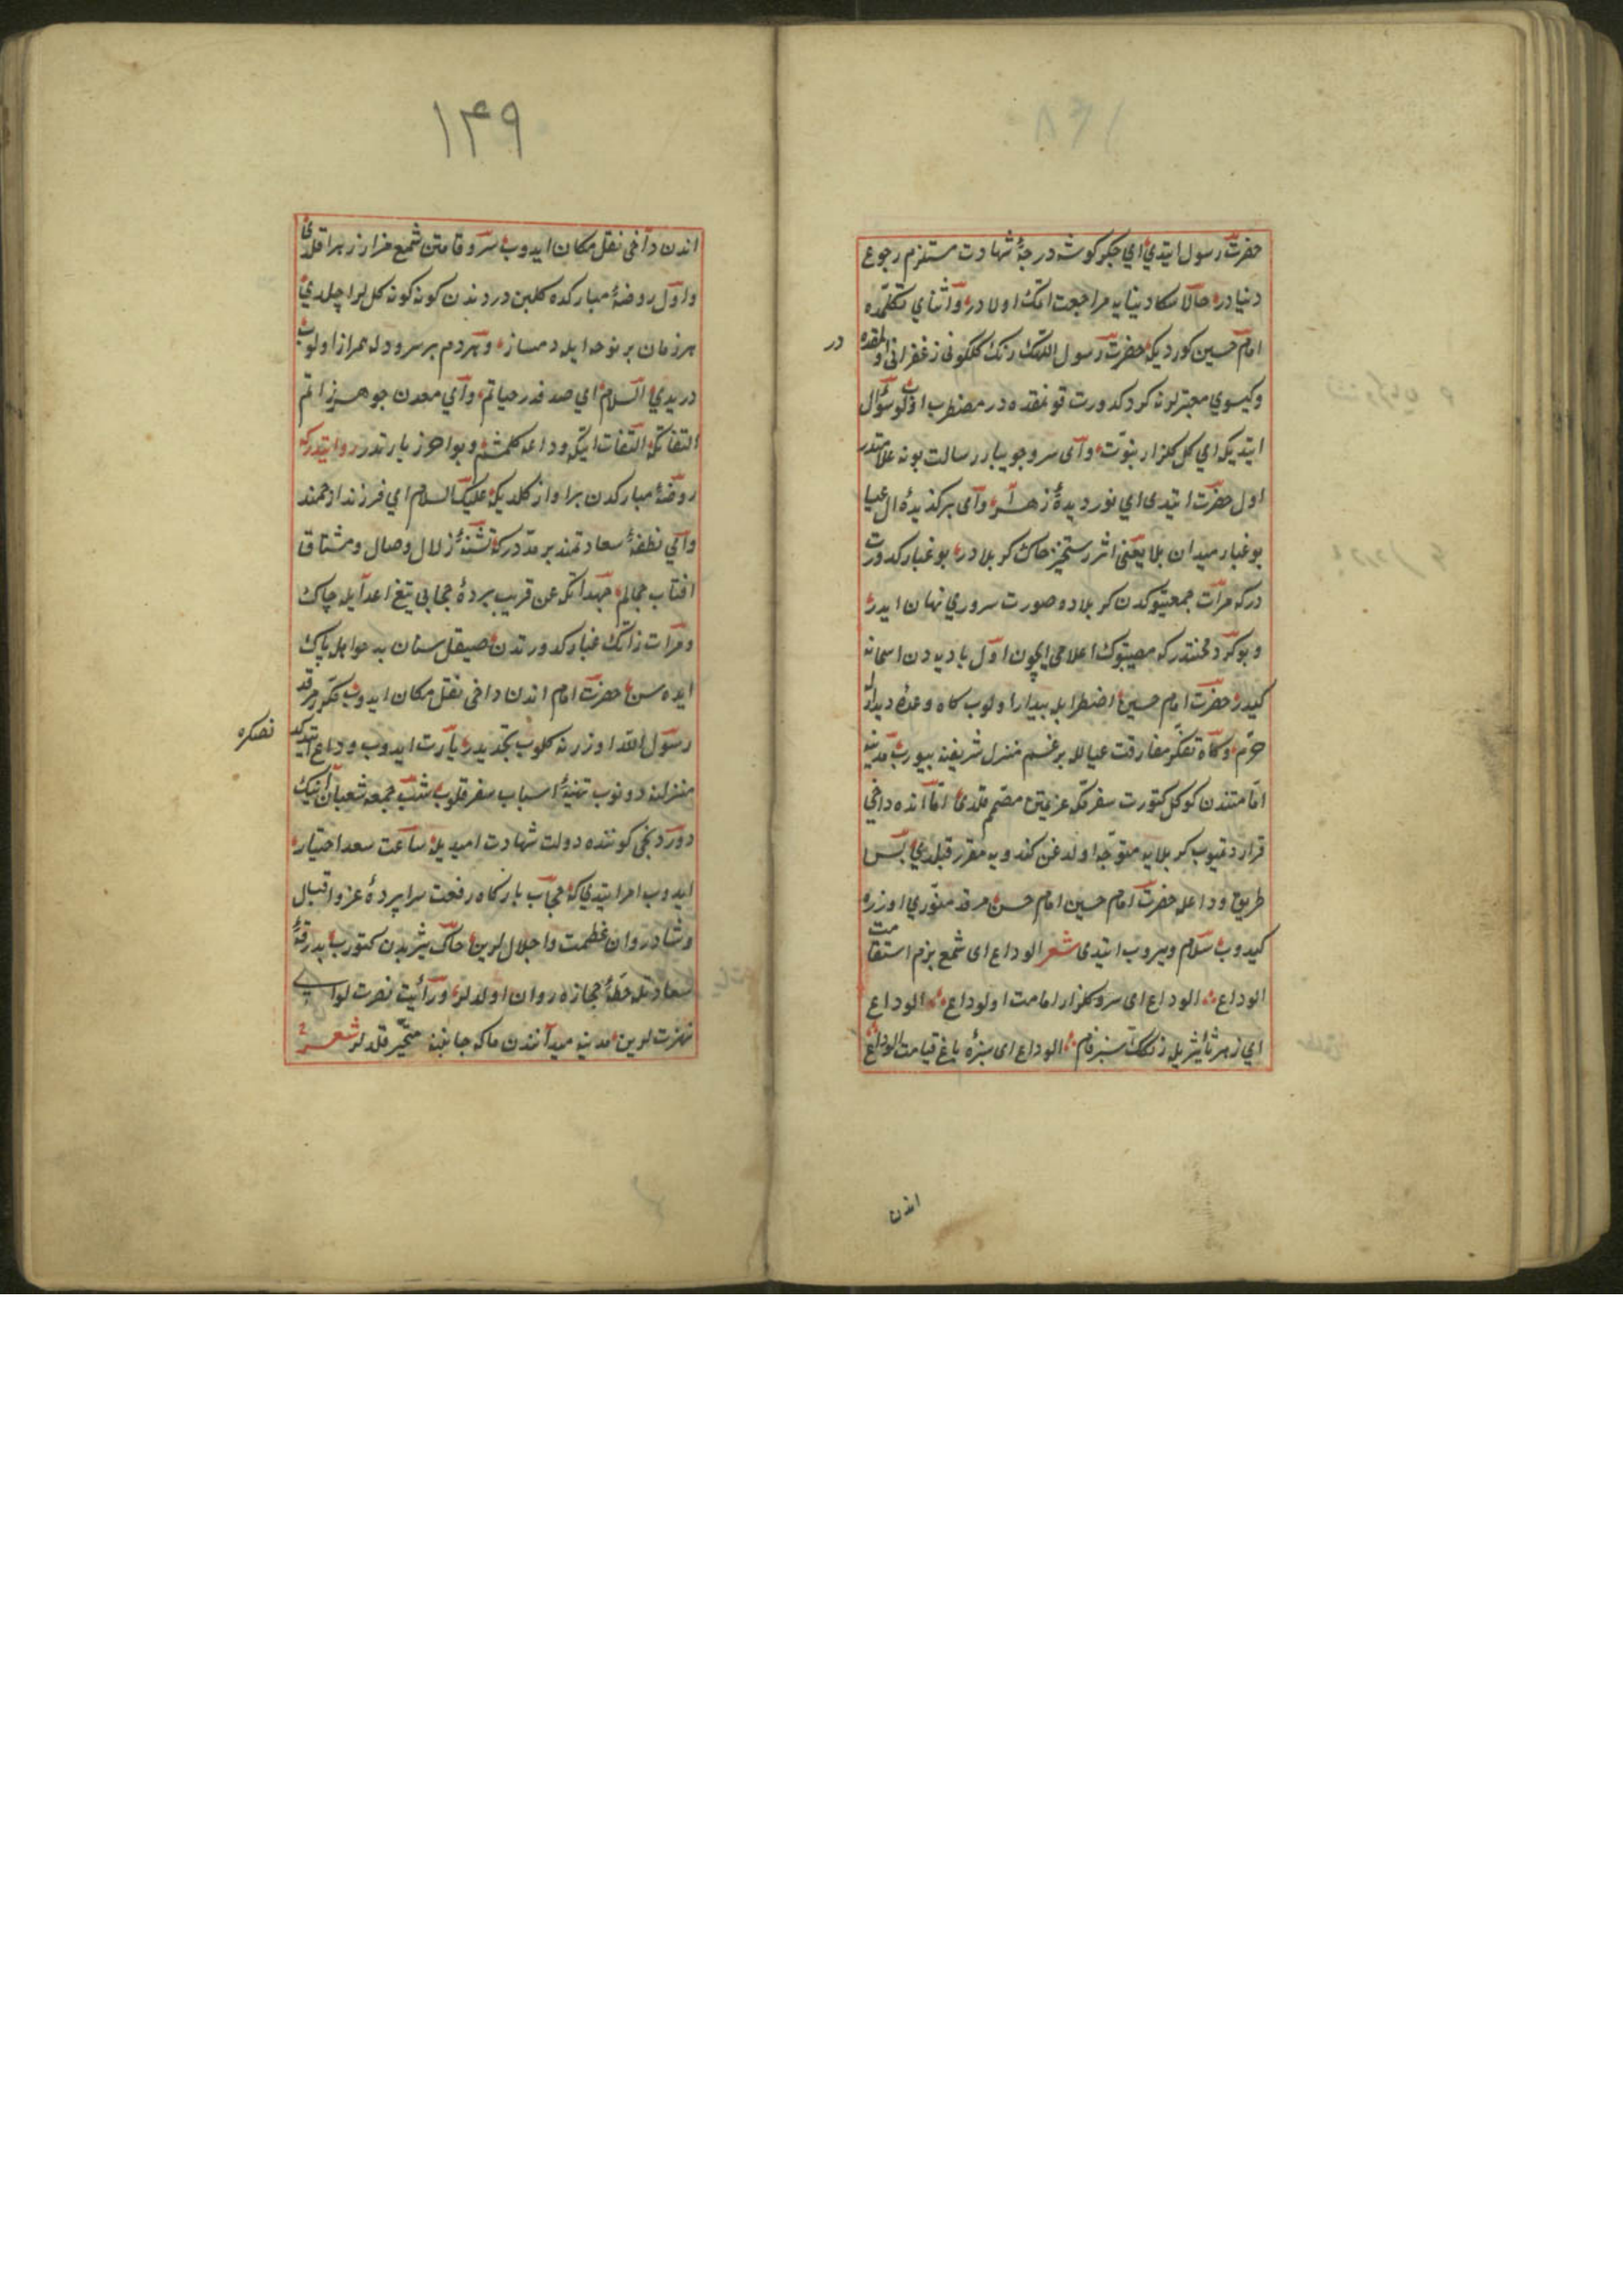 حضرت رسول ایتدی ای جکر کوشه درجهٔ شهادت مستلزم رجوع
دنیا در حالا سکا دنیایه مراجعت اتمک اولادر و اثنای تکلمده
امام حسین کوردیکه حضرت رسول اللهک رنک کلکونی زعفرانی اولمقده در
و کیسوی معنبرلرنه کرد کدورت قونمقده در مضطرب اولوب سؤال
ایتدیکه ای کل کلزار نبوت و ای سرو جویبار رسالت بو نه علامتدر
اول حضرت ایتدی ای نور دیدهٔ زهرا و ای برکزیدهٔ ال عبا
بو غبار میدان بلا یعنی اثر رستخیز خاک کربلادر بو غبار کدورت
درکه مرات جمعیتوکدن کربلاده صورت سروری نهان ایدر
و بو کرد محنتدر که مصیبتوک اعلامی ایچون اول بادیه دن اسمانه
کیدر حضرت امام حسین اضطرابله بیدار اولوب کاه وعدهٔ دیدارله
خرم و کاه تفکر مفارقت عیالله برغم منزل شریفنه بیورب مدینه
اقامتندن کوکل کتورب سفرکه عزیمتن مصمم قلدی اما انده داخی
قرار دتمیوب کربلایه متوجه اولدغن کندویه مقرر قیلدی پس
طریق وداعله حضرت امام حسین امام حسن مرقد منوری اوزره
کیدوب سلام ویروب ایتدی شعر الوداع ای شمع بزم استقامت
الوداع الوداع ای سرو کلزار امامت اولوداع الوداع
ای زهر تأثیریل رنکک سبز فام الوداع ای سبزهٔ باغ قیامت الوداع
اندن
۱۴۹
اندن داخی نقل مکان ایدوب سرو قامتن شمع مزار زهرا قلدی
و اول روضهٔ مبارکده کلبن دردندن کونه کونه کللر اچلدی
هر زمان بر نوحه ایله دمساز و هر دم بر سرودله همراز اولوب
دریدی السلام ای صدف در حیاتم و ای معدن جوهر ذاتم
التفاتکه التفات ایتکه وداعه کلمشم و بو اخر زیارتدر روایتدرکه
روضهٔ مبارکدن بر اواز کلدیکه علیک السلام ای فرزند ارجمند
و ای نطفهٔ سعادتمند بر مدتدرکه تشنهٔ زلال وصال و مشتاق
افتاب جمالم جهد اتکه عن قریب پردهٔ حجابی تیغ اعدا ایله چاک
و مرات ذاتک غبار کدورتدن صیقل سنان بدخواهله پاک
ایده سن حضرت امام اندن داخی نقل مکان ایدوب مکرر مرقد
رسول الله اوزرنه کلوب تجدید زیارت ایدوب وداع ایتدکدنصکره
منزلنه دونوب تهیهٔ اسباب سفر قلوب شب جمعه شعبان انیک
دوردنجی کوننده دولت شهادت امیدیله ساعت سعد اختیار
ایدوب امر ایتدی که حجاب بارکاه رفعت سراپردهٔ عز و اقبال
و شادروان عظمت و اجلاللرین خاک یثربدن کتورب بدرقهٔ
سعادتله خطهٔ حجازه روان اولدلر و رأیت نصرت لوای
نهزتلرین مدینه میداننده مکه جانبنه متحیر قلدلر شعر